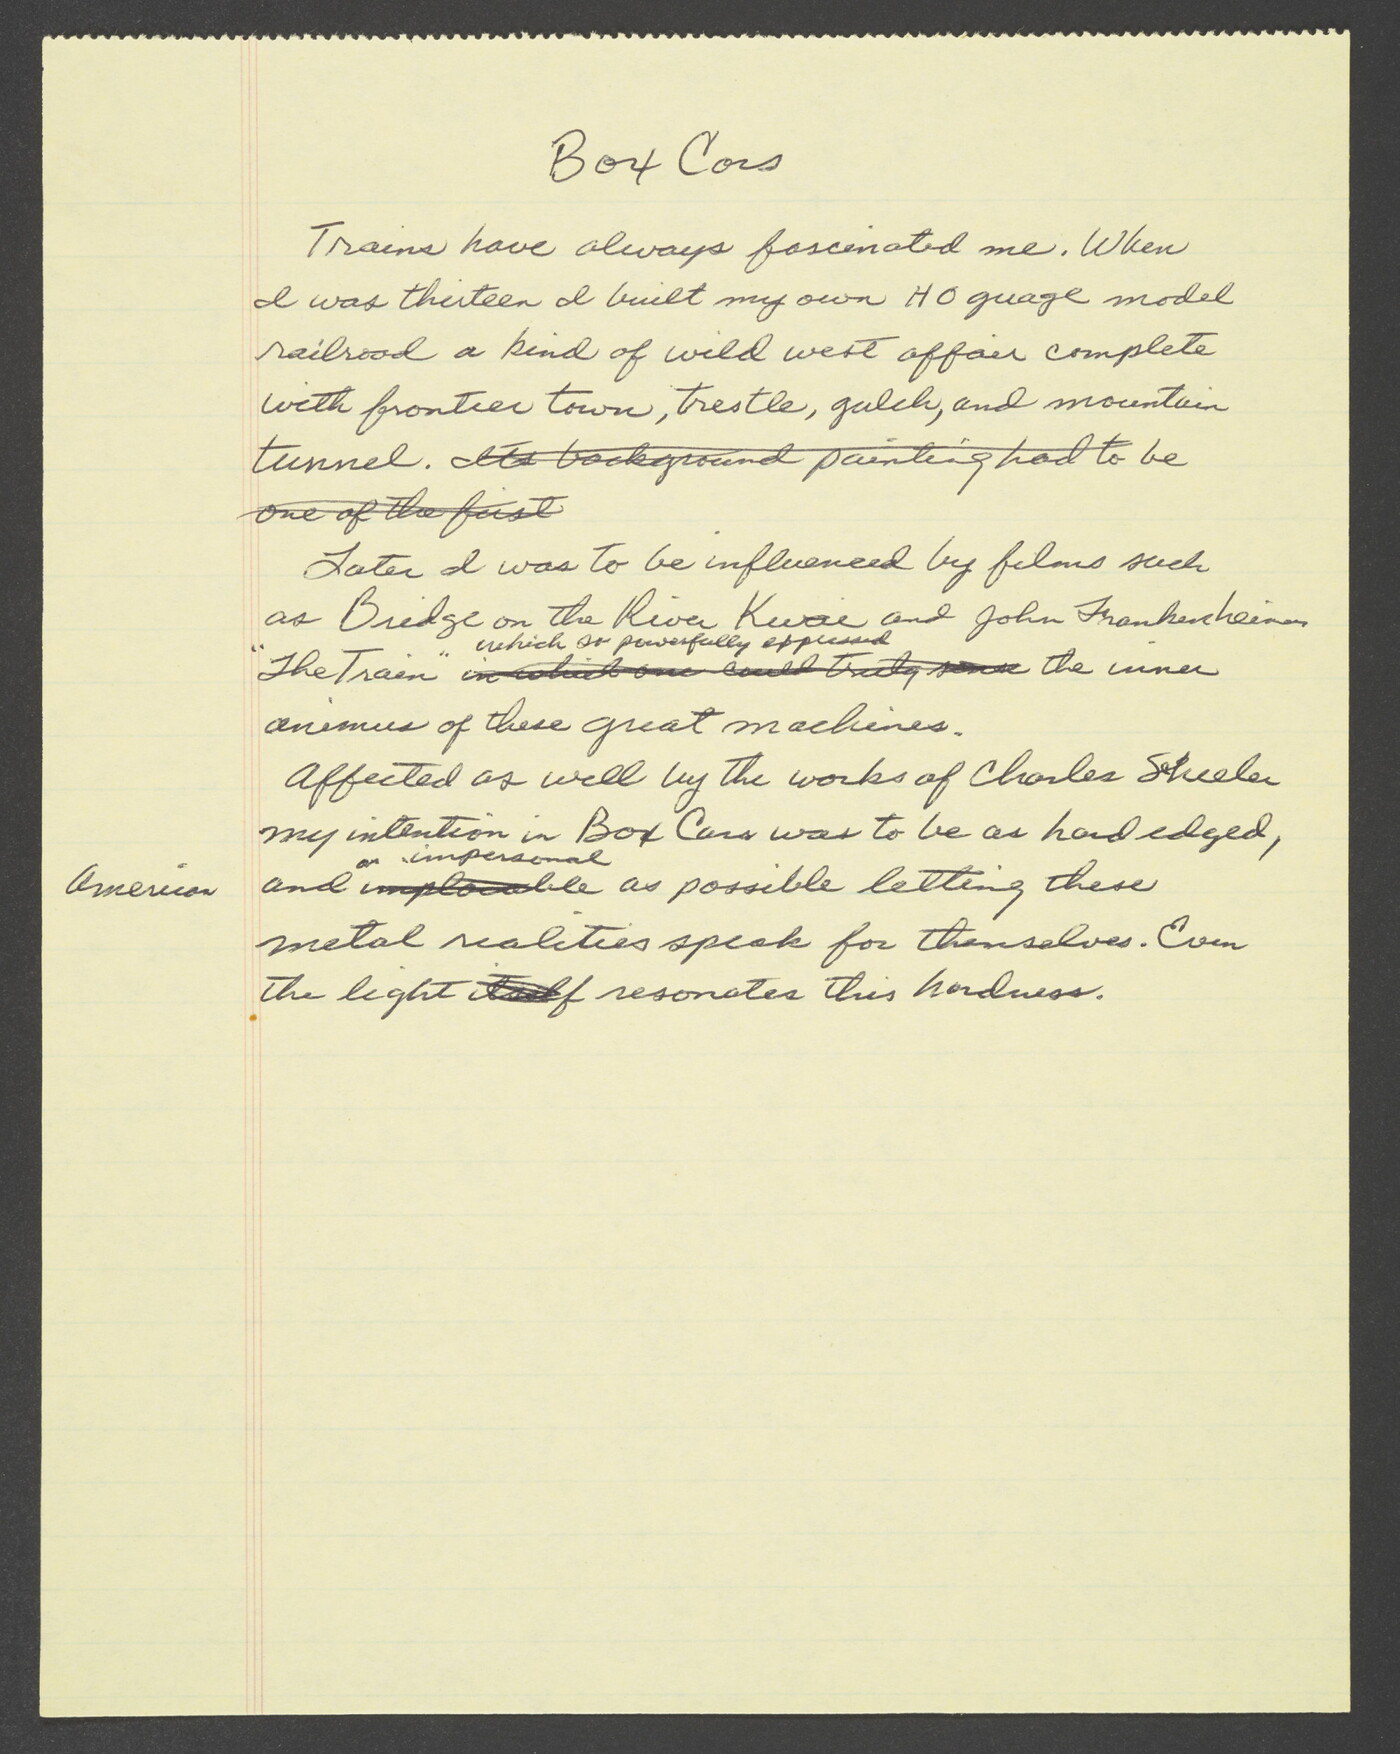 Box Cars
Trains have always fascinated me. When
I was thirteen I built my own HO guage model
railroad a kind of wild west affair complete
with frontier town, trestle, gulch, and mountain
tunnel. Its background painting had to be
one of the first
Later I was to be influenced by films such
as Bridge on the River Kwai and John Frankenheimer
which so powerfully expressed
"The Train" in which one could truly sense the inner
animus of these great machines.
Affected as well by the works of Charles Sheeler
my intention in Box Cars was to be as hard edged,
impersonal
American and implacable as possible letting these
metal realities speak for themselves. Even
the light itself resonates this hardness.